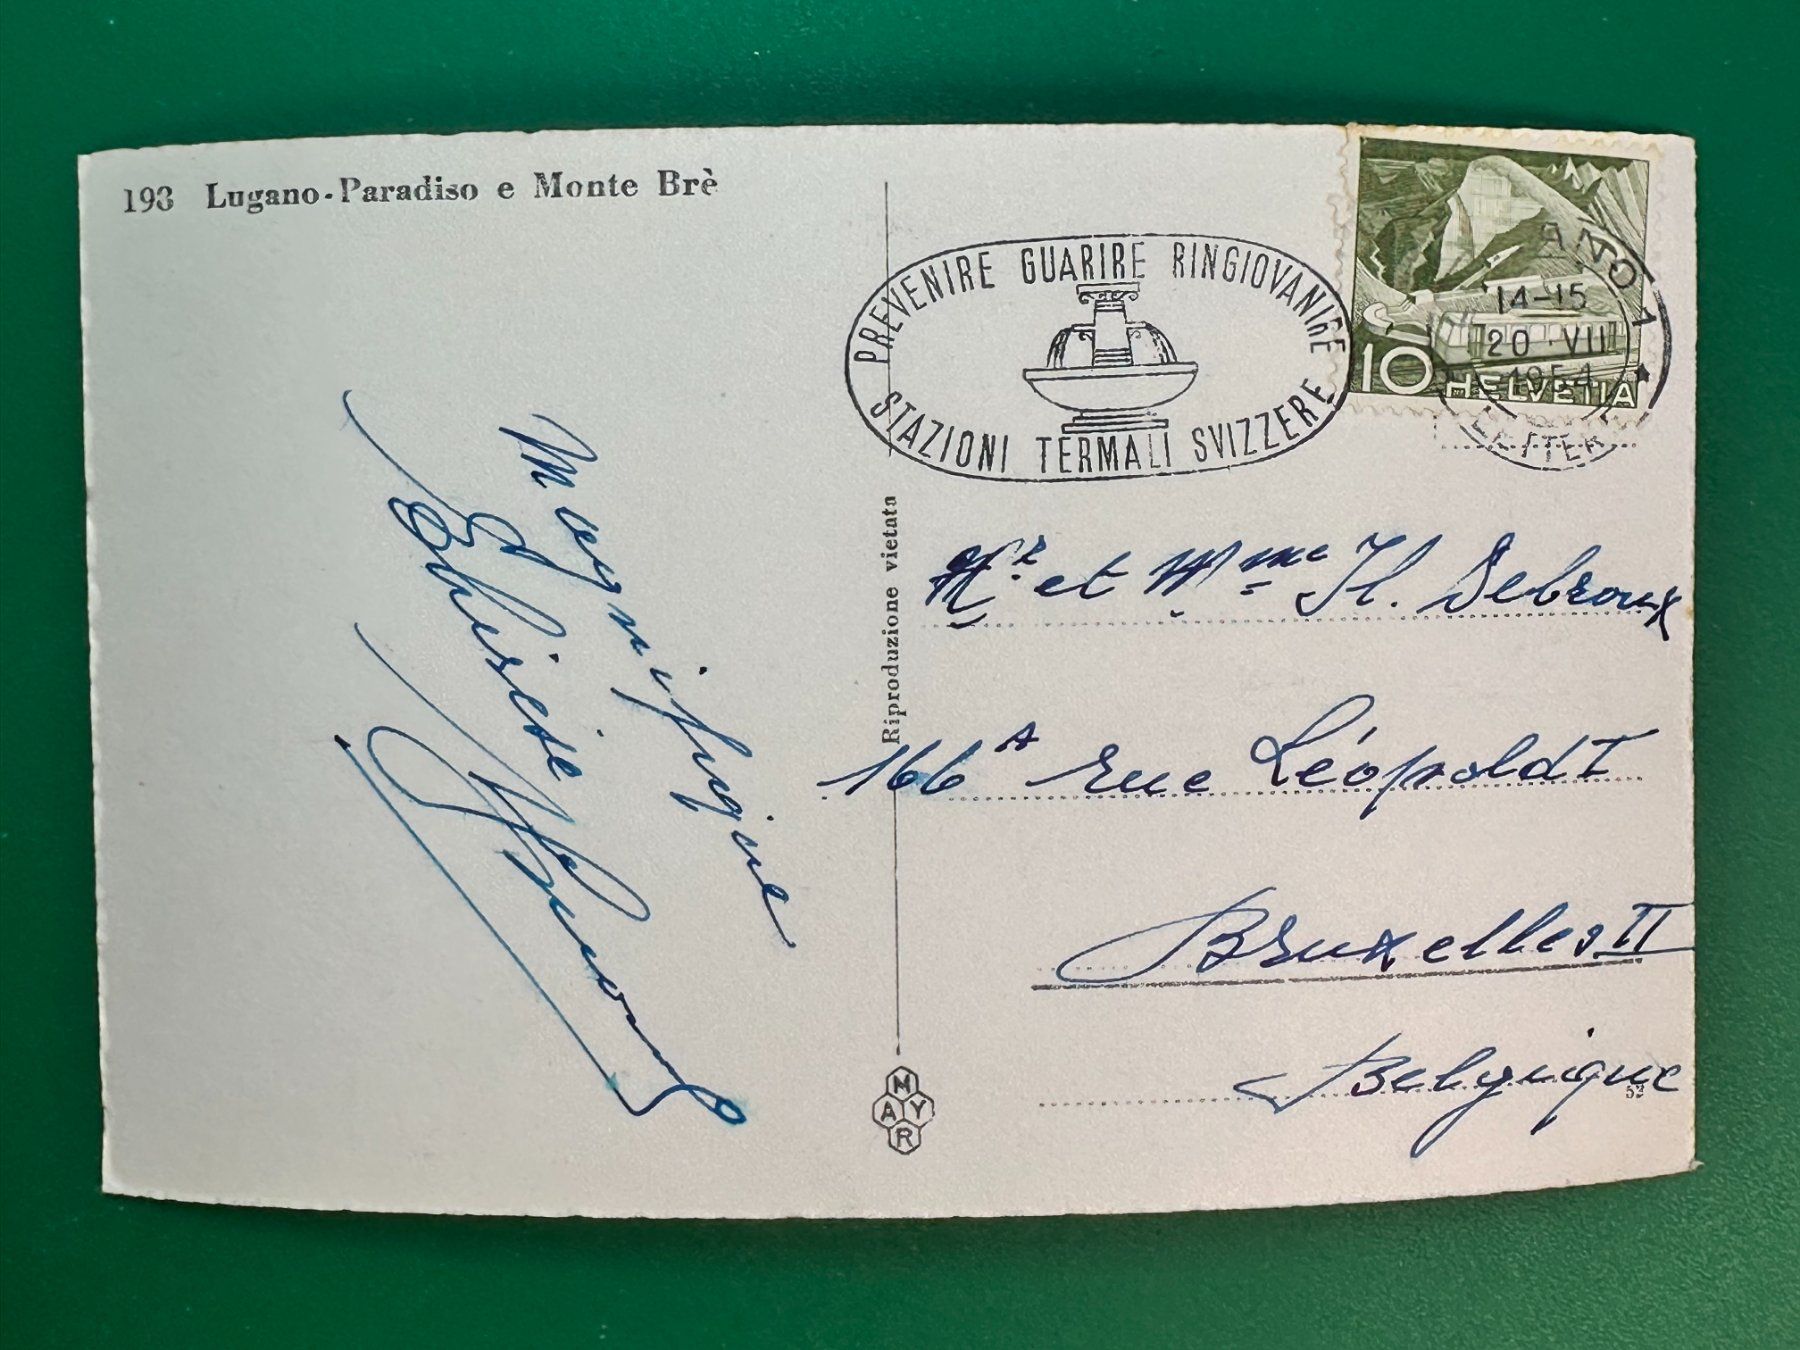 193 Lugano-Paradiso e Monte Brè
PREVENIRE GUARIRE RINGIOVANIRE
STAZIONI TERMALI SVIZZERE
ANO 1
14-15
20 VII
1954
10 HELVETIA
Magnifique
Riproduzione vietata
Mr et Mme H. Debroux
166A rue Léopold I
Bruxelles II
Belgique
52
MAYR